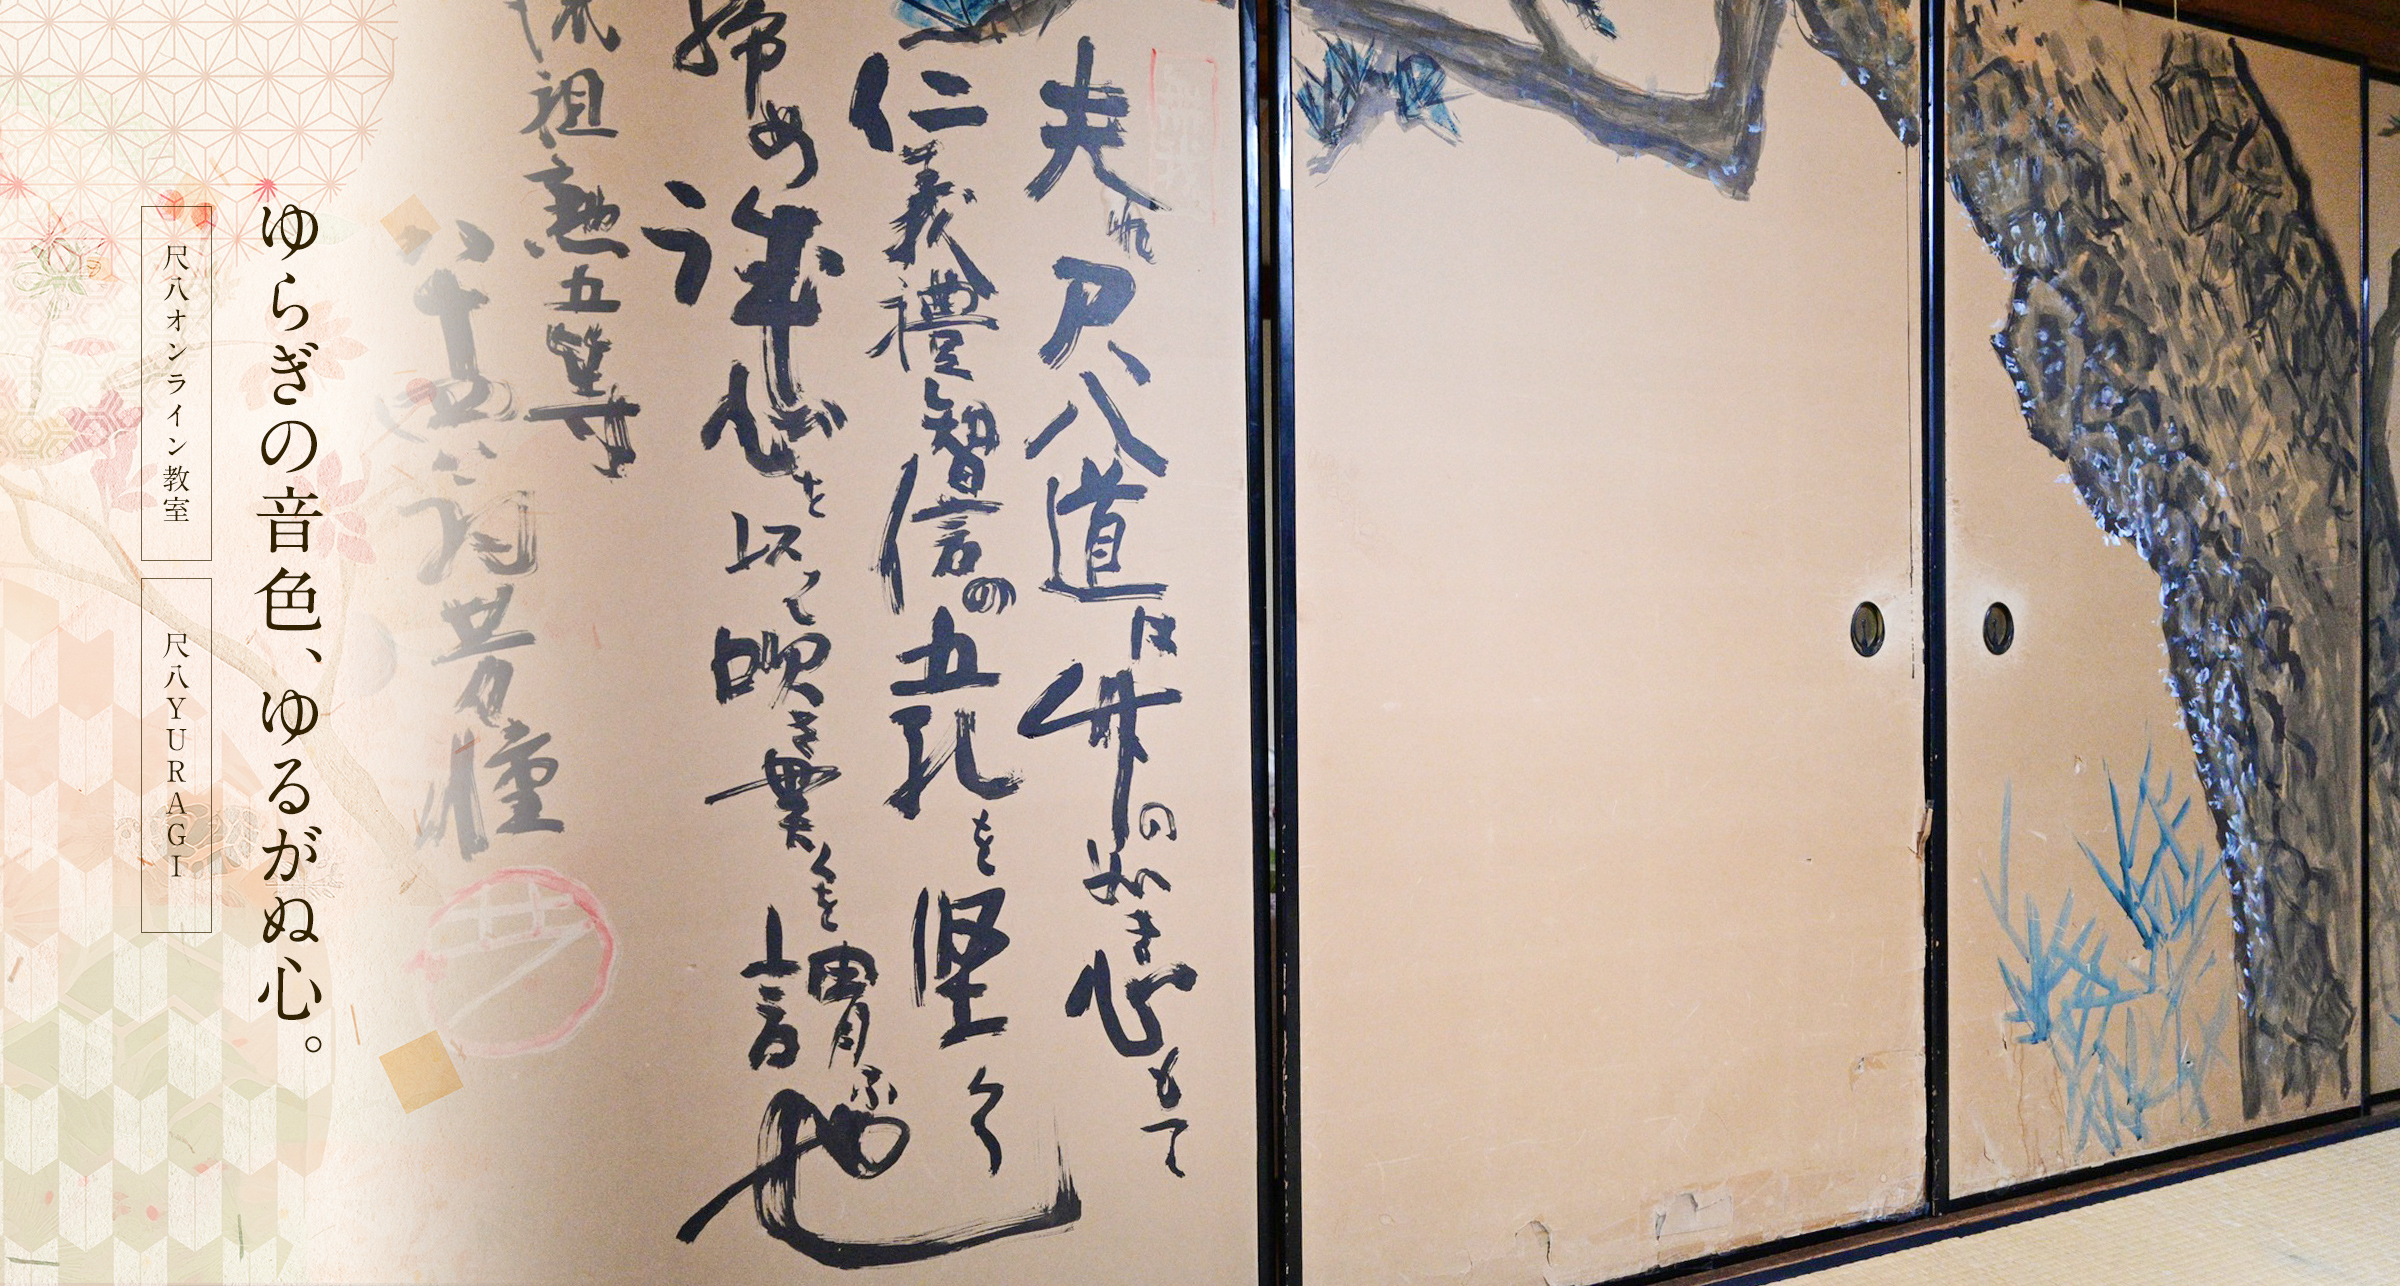 夫れ尺八道は竹の如き心もて
仁義禮智信の五孔を堅く
締め誠心を以て吹き畢くを謂ふ
也
流祖勲五等
八十五
芳憧
ゆらぎの音色、ゆるがぬ心。
尺八オンライン教室
尺八YURAGI